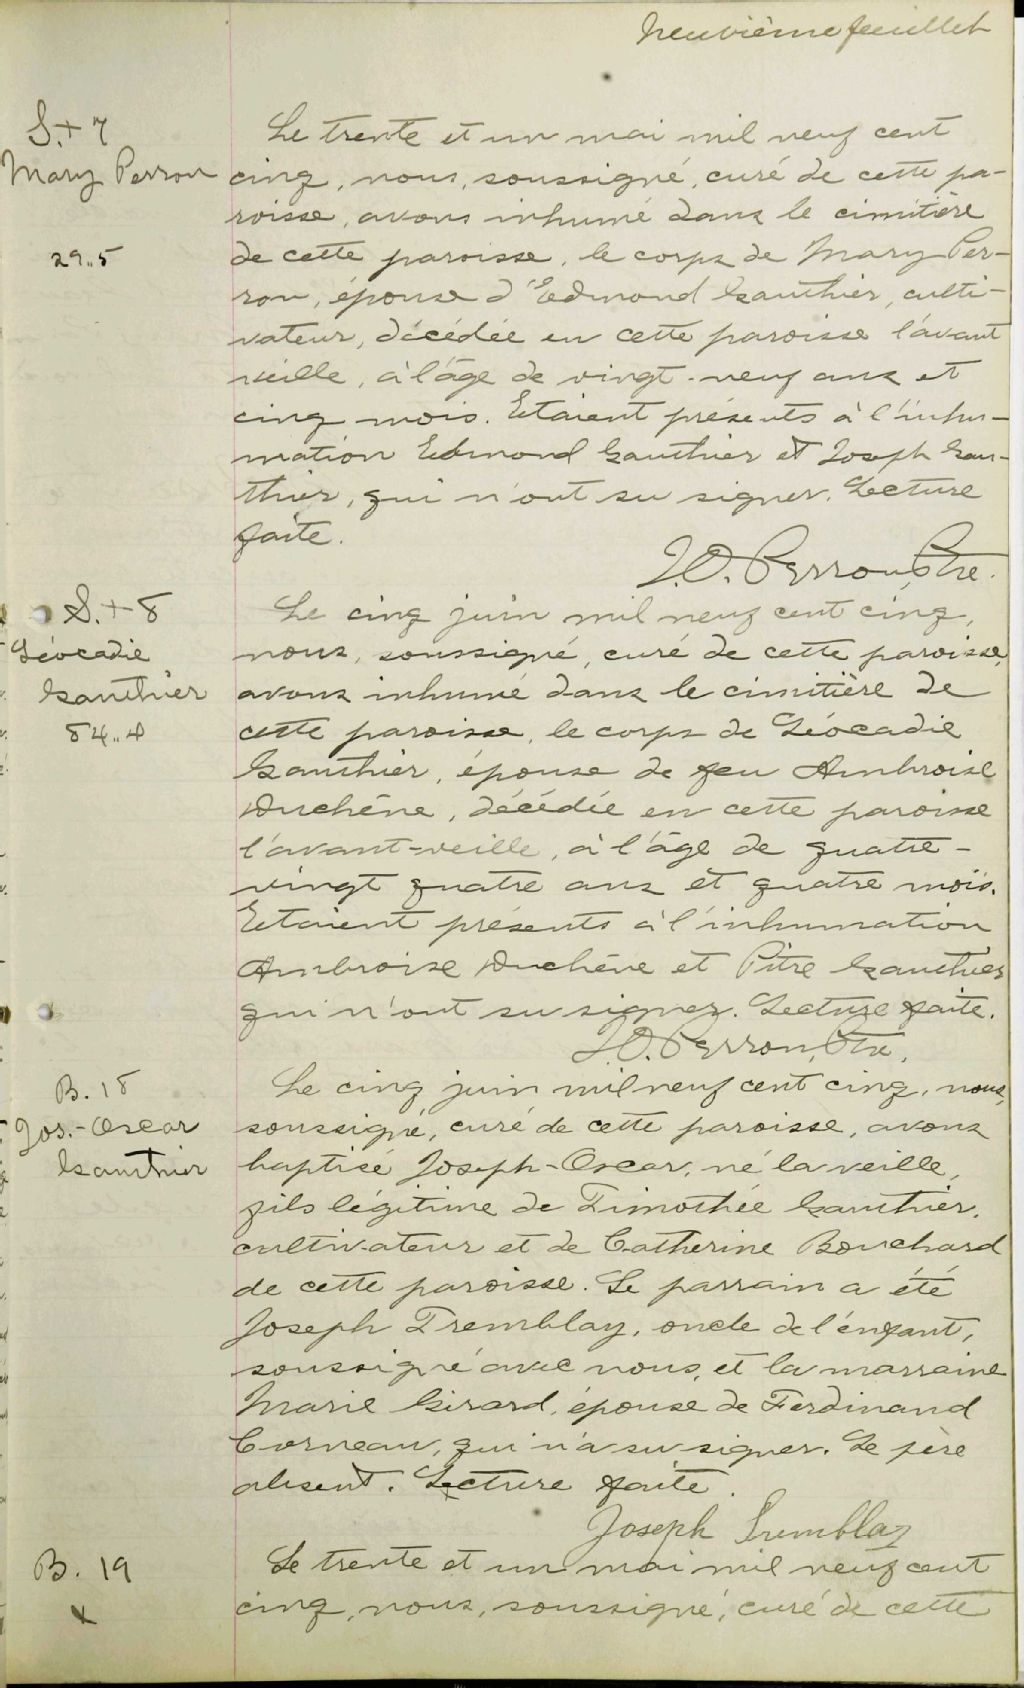 Neuvième feuillet
S.+ 7
Mary Perron
29..5
Le trente et un mai mil neuf cent
cinq, nous, soussigné, curé de cette pa-
roisse, avons inhumé dans le cimitière
de cette paroisse, le corps de Mary Per-
ron, épouse d'Edmond Gauthier, culti-
vateur, décédée en cette paroisse l'avant
veille, à l'âge de vingt-neuf ans et
cinq mois. Etaient présents à l'inhu-
mation Edmond Gauthier et Joseph Gau-
thier, qui n'ont su signer. Lecture
faite.
J.O. Perron, Ptre.
S.+ 8
Léocadie
Gauthier
84..4
Le cinq juin mil neuf cent cinq,
nous, soussigné, curé de cette paroisse,
avons inhumé dans le cimitière de
cette paroisse, le corps de Léocadie
Gauthier, épouse de feu Ambroise
Duchêne, décédée en cette paroisse
l'avant-veille, à l'âge de quatre-
vingt quatre ans et quatre mois.
Etaient présents à l'inhumation
Ambroise Duchêne et Pitre Gauthier
qui n'ont su signer. Lecture faite.
J.O. Perron, Ptre.
B. 18
Jos.-Oscar
Gauthier
Le cinq juin mil neuf cent cinq, nous,
soussigné, curé de cette paroisse, avons
baptisé Joseph-Oscar, né la veille,
fils légitime de Timothée Gauthier,
cultivateur et de Catherine Bouchard
de cette paroisse. Le parrain a été
Joseph Tremblay, oncle de l'enfant,
soussigné avec nous, et la marraine
Marie Girard, épouse de Ferdinand
Corneau, qui n'a su signer. Le père
absent. Lecture faite.
Joseph Tremblay
B. 19
x
Le trente et un mai mil neuf cent
cinq, nous, soussigné, curé de cette